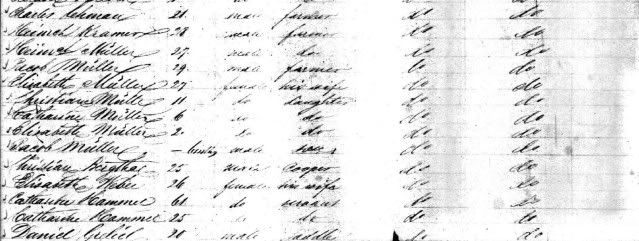 Charles Lehman 21 male farmer do do
Heinrich Kramer 28 male farmer do do
Heinr Müller 27 male do do do
Jacob Müller 29 male farmer do do
Elisabeth Müller 27 female his wife do do
Christiane Müller 11 do daughter do do
Catharine Müller 6 do do do do
Elisabeth Müller 2 do do do do
Jacob Müller male do do
Christian 25 male Cooper do do
Elisabeth Weber 26 female his wife do do
Catharine Hammer 61 do do do
Catharine Hammer 25 do do do do
Daniel male do do